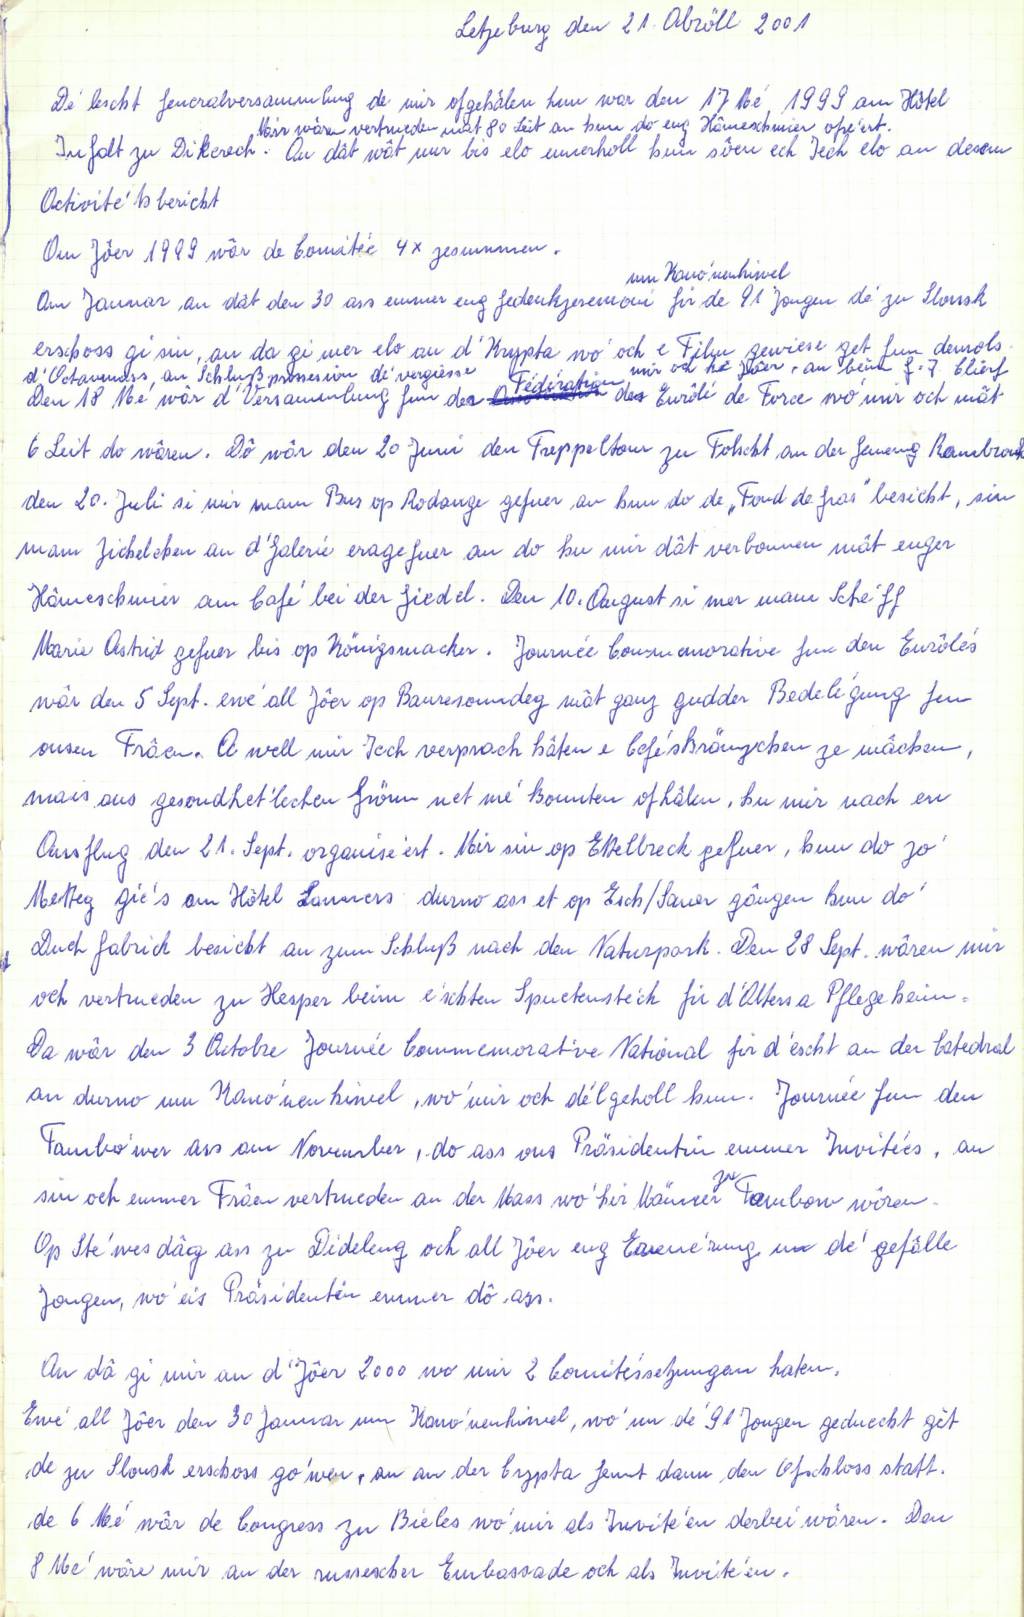 Letzeburg den 21. Abröll 2001
Dé lescht Generalversammlung de mir ofgehâlen hun war den 17 Mé 1999 am Hôtel
Mir wâren vertrueden mat 80 Leit an hun do eng Hâmeschmier oféert.
zu Dikerech. An dât wât mir bis elo ennerholl hun sôen ech Iech elo an desem
Activitéitsbericht
Am Jôer 1999 wôr de Comitée 4x zesummen.
um Kanónenhiwel
Am Januar an dât den 30 ass emmer eng Gedenkzeremoni fir de 91 Jongen dé zu Slonsk
erschoss gi sin, an da gi mer elo an d'Krypta wó och e Film gewiese get fun demols.
d'Octavmass, an Schlußprossesion dé vergiesse mir och ké Jôer, an beim J.-J.
Den 18 Mé wôr d'Versammlung fun der Fédération des Enrôlé de Force wó mir och mât
6 Leit do wâren. Dô wôr den 20 Juni den Treppeltour zu Folscht an der Gemeng Rambrouch
den 20. Juli si mir mam Bus op Rodange gefuer an hun do de „Fond de Gras" besicht, sin
mam Zichelchen an d'Galerie eragefuer an do hu mir dât verbonnen mât enger
Hâmeschmier am Café bei der Giedel. Den 10. August si mer mam Schëff
Marie Astrid gefuer bis op Königsmacker. Journée Commemorative fun den Enrôlés
wôr den 5 Sept. ewé all Jôer op Bauresonndeg mât ganz gudder Bedelégung fun
onsen Frâen. A well mir Iech versprach hâten e Caféskrânzchen ze mâchen,
mais aus gesondhétlechen Grönn net mé konnten ofhâlen, hu mir nach en
Ausflug den 21. Sept. organiséert. Mir sin op Ettelbreck gefuer, hun do zó
Metteg giés am Hôtel Lanners durno ass et op Esch/Sauer gângen hun dó
Duch Fabrick besicht an zum Schluß nach den Naturpark. Den 28 Sept. wâren mir
och vertrueden zu Hesper beim éischten Spuetensteich fir d'Alters a Pflegeheim.
Da wôr den 3 Octobre Journée Commemorative National fir d'éscht an der Catedral
an durno um Kanónenhiwel, wó mir och délgeholl hun. Journée fun den
Tambówer ass am November, do ass ons Präsidentin emmer Invitées, an
sin och emmer Frâen vertrueden an der Mass wó hir Männer zu Tambow wôren.
Op Stéwesdâg ass zu Dideleng och all Jôer eng un dé gefâlle
Jongen, wó eis Präsidentin emmer dô ass.
An dâ gi mir an d'Jôer 2000 wo mir 2 Comitéssetzungen haten.
Ewé all Jôer den 30 Januar um Kanónenhiwel, wó un dé 91 Jongen geduecht gêt
de zu Slonsk erschoss gówen, an an der Crypta fennt dann den Ofschloss statt.
de 6 Mé wôr de Congress zu Bieles wó mir als Invitéen derbei wâren. Den
8 Mé wâre mir an der russescher Embassade och als Invitéen.